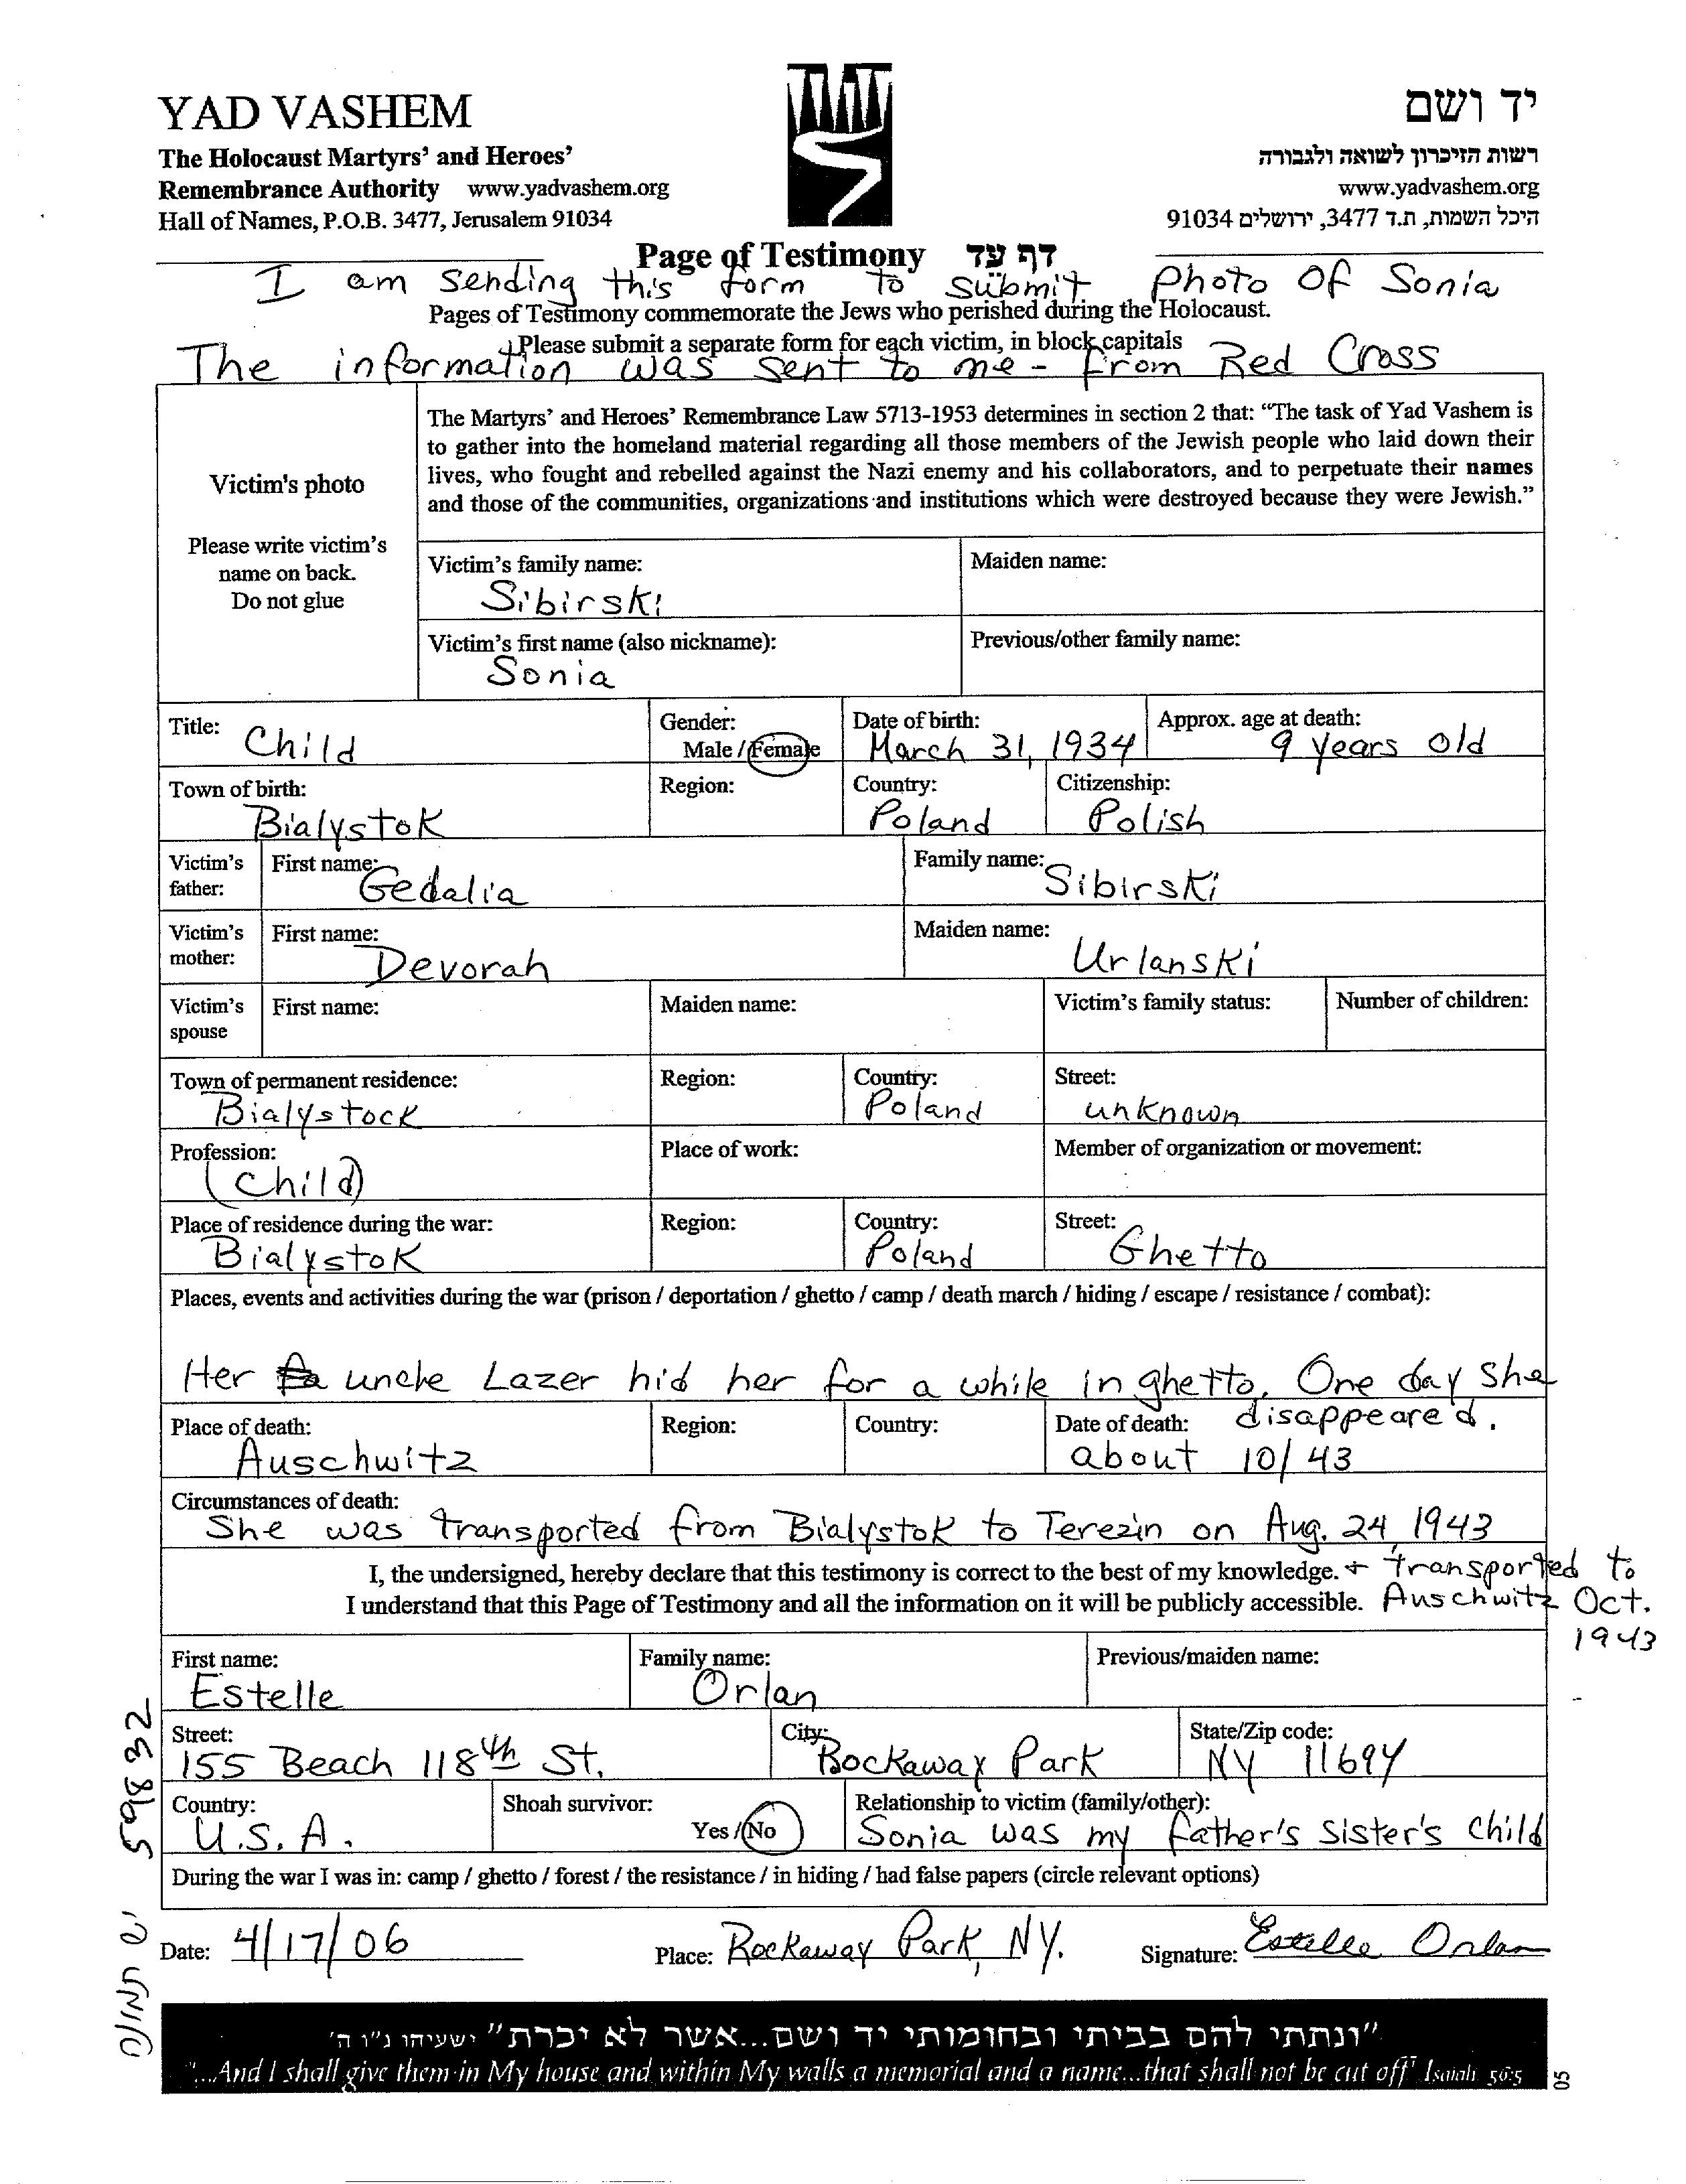 YAD VASHEM
The Holocaust Martyrs' and Heroes'
Remembrance Authority www.yadvashem.org
Hall of Names, P.O.B. 3477, Jerusalem 91034
יד ושם
רשות הזיכרון לשואה ולגבורה
www.yadvashem.org
היכל השמות, ת.ד 3477, ירושלים 91034
Page of Testimony דף עד
I am sending this form to submit photo of Sonia
Pages of Testimony commemorate the Jews who perished during the Holocaust.
Please submit a separate form for each victim, in block capitals
The information was sent to me - from Red Cross
Victim's photo
Please write victim's
name on back.
Do not glue
The Martyrs' and Heroes' Remembrance Law 5713-1953 determines in section 2 that: "The task of Yad Vashem is
to gather into the homeland material regarding all those members of the Jewish people who laid down their
lives, who fought and rebelled against the Nazi enemy and his collaborators, and to perpetuate their names
and those of the communities, organizations and institutions which were destroyed because they were Jewish."
Victim's family name: Maiden name:
Sibirski
Victim's first name (also nickname): Previous/other family name:
Sonia
Title: Child Gender: Date of birth: Approx. age at death:
Male / Female March 31, 1934 9 years old
Town of birth: Region: Country: Citizenship:
Bialystok Poland Polish
Victim's father: First name: Gedalia Family name: Sibirski
Victim's mother: First name: Devorah Maiden name: Urlanski
Victim's spouse First name: Maiden name: Victim's family status: Number of children:
Town of permanent residence: Region: Country: Street:
Bialystock Poland unknown
Profession: Place of work: Member of organization or movement:
(Child)
Place of residence during the war: Region: Country: Street:
Bialystok Poland Ghetto
Places, events and activities during the war (prison / deportation / ghetto / camp / death march / hiding / escape / resistance / combat):
Her uncle Lazer hid her for a while in ghetto. One day she
disappeared.
Place of death: Region: Country: Date of death:
Auschwitz about 10/43
Circumstances of death:
She was transported from Bialystok to Terezin on Aug. 24, 1943
I, the undersigned, hereby declare that this testimony is correct to the best of my knowledge. + transported to
I understand that this Page of Testimony and all the information on it will be publicly accessible. Auschwitz Oct.
1943
First name: Family name: Previous/maiden name:
Estelle Orlan
Street: City: State/Zip code:
155 Beach 118th St. Rockaway Park NY 11694
Country: Shoah survivor: Relationship to victim (family/other):
U.S.A. Yes / No Sonia was my father's sister's child
During the war I was in: camp / ghetto / forest / the resistance / in hiding / had false papers (circle relevant options)
Date: 4/17/06 Place: Rockaway Park, NY. Signature: Estelle Orlan
יש תמונה 59832
"ונתתי להם בביתי ובחומותי יד ושם...אשר לא יכרת" ישעיהו נ"ו ה'
"...And I shall give them in My house and within My walls a memorial and a name...that shall not be cut off" Isaiah 56:5
05